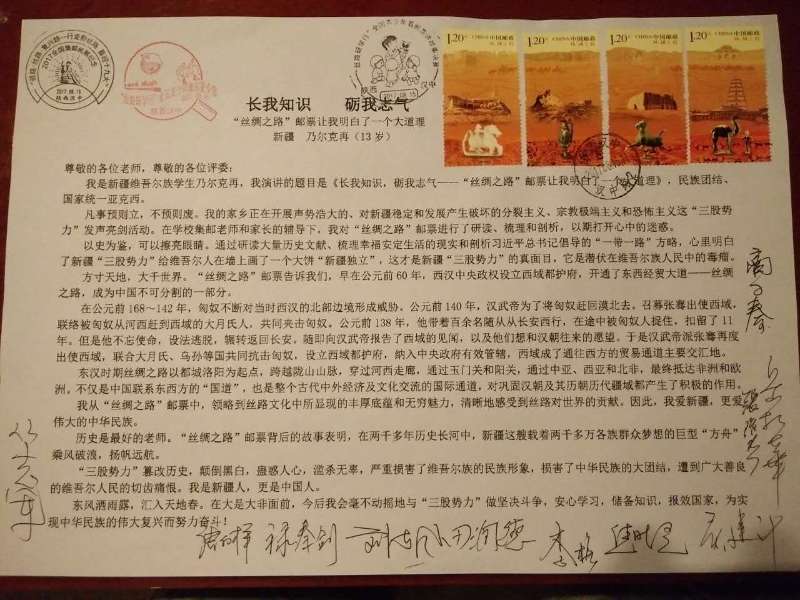 1.20元 CHINA 中国邮政
1.20元 CHINA 中国邮政
1.20元 CHINA 中国邮政
1.20元 CHINA 中国邮政
2017.08.15
陕西汉中
陕西 汉中
2017.08.15
长我知识 砺我志气
“丝绸之路”邮票让我明白了一个大道理
新疆 乃尔克再（13岁）
尊敬的各位老师，尊敬的各位评委：
我是新疆维吾尔族学生乃尔克再，我演讲的题目是《长我知识，砺我志气——“丝绸之路”邮票让我明白了一个大道理》，民族团结、
国家统一亚克西。
凡事预则立，不预则废。我的家乡正在开展声势浩大的、对新疆稳定和发展产生破坏的分裂主义、宗教极端主义和恐怖主义这“三股势
力”发声亮剑活动。在学校集邮老师和家长的辅导下，我对“丝绸之路”邮票进行了研读、梳理和剖析，以期打开心中的迷惑。
以史为鉴，可以擦亮眼睛。通过研读大量历史文献、梳理幸福安定生活的现实和剖析习近平总书记倡导的“一带一路”方略，心里明白
了新疆“三股势力”给维吾尔人在墙上画了一个大饼“新疆独立”，这才是新疆“三股势力”的真面目，它是潜伏在维吾尔族人民中的毒瘤。
方寸天地，大千世界。“丝绸之路”邮票告诉我们，早在公元前60年，西汉中央政权设立西域都护府，开通了东西经贸大道——丝绸
之路，成为中国不可分割的一部分。
在公元前168～142年，匈奴不断对当时西汉的北部边境形成威胁。公元前140年，汉武帝为了将匈奴赶回漠北去，召募张骞出使西域，
联络被匈奴从河西赶到西域的大月氏人，共同夹击匈奴。公元前138年，他带着百余名随从从长安西行，在途中被匈奴人捉住，扣留了11
年。但是他不忘使命，设法逃脱，辗转返回长安，随即向汉武帝报告了西域的见闻，以及他们想和汉朝往来的愿望。于是汉武帝派张骞再度
出使西域，联合大月氏、乌孙等国共同抗击匈奴，设立西域都护府，纳入中央政府有效管辖，西域成了通往西方的贸易通道主要交汇地。
东汉时期丝绸之路以都城洛阳为起点，跨越陇山山脉，穿过河西走廊，通过玉门关和阳关，通过中亚、西亚和北非，最终抵达非洲和欧
洲。不仅是中国联系东西方的“国道”，也是整个古代中外经济及文化交流的国际通道，对巩固汉朝及其历朝历代疆域都产生了积极的作用。
我从“丝绸之路”邮票中，领略到丝路文化中所显现的丰厚底蕴和无穷魅力，清晰地感受到丝路对世界的贡献。因此，我爱新疆，更爱
伟大的中华民族。
历史是最好的老师。“丝绸之路”邮票背后的故事表明，在两千多年历史长河中，新疆这艘载着两千多万各族群众梦想的巨型“方舟”
乘风破浪，扬帆远航。
“三股势力”篡改历史，颠倒黑白，蛊惑人心，滥杀无辜，严重损害了维吾尔族的民族形象，损害了中华民族的大团结，遭到广大善良
的维吾尔人民的切齿痛恨。我是新疆人，更是中国人。
东风洒雨露，汇入天地春。在大是大非面前，今后我会毫不动摇地与“三股势力”做坚决斗争，安心学习，储备知识，报效国家，为实
现中华民族的伟大复兴而努力奋斗！